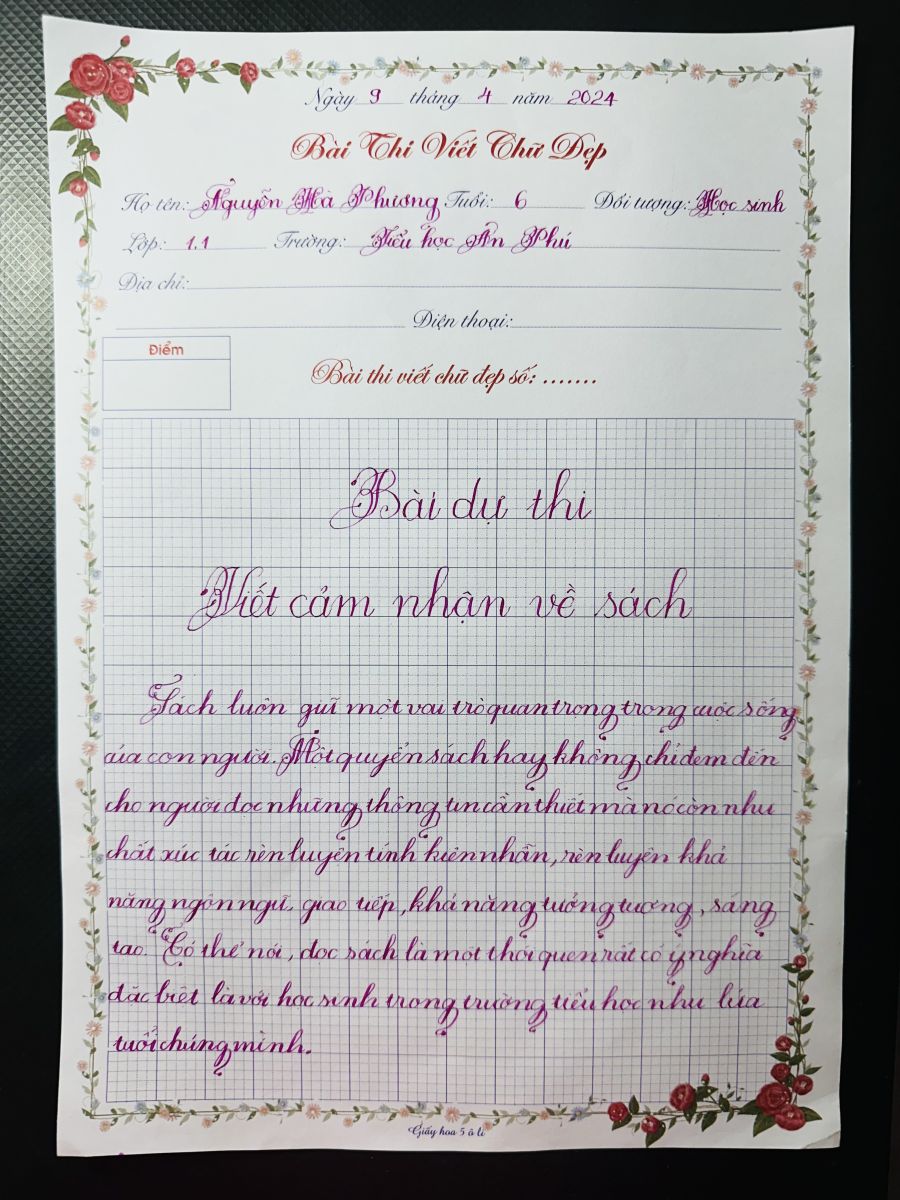 Ngày 9 tháng 4 năm 2024
Bài Thi Viết Chữ Đẹp
Họ tên: Nguyễn Hà Phương Tuổi: 6 Đối tượng: Học sinh
Lớp: 1.1 Trường: Tiểu học An Phú
Địa chỉ:
Điện thoại:
Điểm
Bài thi viết chữ đẹp số: .......
Bài dự thi
Viết cảm nhận về sách
Sách luôn giữ một vai trò quan trọng trong cuộc sống
của con người. Một quyển sách hay không chỉ đem đến
cho người đọc những thông tin cần thiết mà nó còn như
chất xúc tác rèn luyện tính kiên nhẫn, rèn luyện khả
năng ngôn ngữ, giao tiếp, khả năng tưởng tượng, sáng
tạo. Có thể nói, đọc sách là một thói quen rất có ý nghĩa
đặc biệt là với học sinh trong trường tiểu học như lứa
tuổi chúng mình.
Giấy hoa 5 ô li